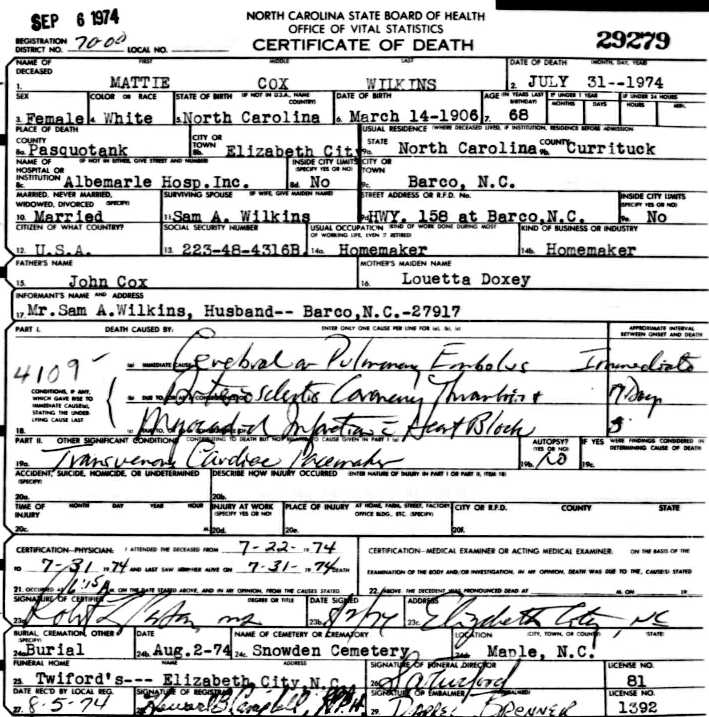 SEP 6 1974
NORTH CAROLINA STATE BOARD OF HEALTH
OFFICE OF VITAL STATISTICS
REGISTRATION DISTRICT NO. 70-00 LOCAL NO. CERTIFICATE OF DEATH 29279
NAME OF DECEASED FIRST MIDDLE LAST DATE OF DEATH (MONTH, DAY, YEAR)
1. MATTIE COX WILKINS 2. JULY 31--1974
SEX COLOR OR RACE STATE OF BIRTH (IF NOT IN U.S.A., NAME COUNTRY) DATE OF BIRTH AGE (IN YEARS LAST BIRTHDAY) IF UNDER 1 YEAR MONTHS DAYS IF UNDER 24 HOURS HOURS MIN.
3. Female 4. White 5. North Carolina 6. March 14-1906 7. 68
PLACE OF DEATH USUAL RESIDENCE (WHERE DECEASED LIVED, IF INSTITUTION, RESIDENCE BEFORE ADMISSION)
COUNTY CITY OR TOWN STATE COUNTY
8a. Pasquotank 8b. Elizabeth City 9a. North Carolina 9b. Currituck
NAME OF HOSPITAL OR INSTITUTION (IF NOT IN EITHER, GIVE STREET AND NUMBER) INSIDE CITY LIMITS (SPECIFY YES OR NO) CITY OR TOWN
8c. Albemarle Hosp.Inc. 8d. No 9c. Barco, N.C.
MARRIED, NEVER MARRIED, WIDOWED, DIVORCED (SPECIFY) SURVIVING SPOUSE (IF WIFE, GIVE MAIDEN NAME) STREET ADDRESS OR R.F.D. No. INSIDE CITY LIMITS (SPECIFY YES OR NO)
10. Married 11. Sam A. Wilkins 9d. HWY. 158 at Barco,N.C. 9e. No
CITIZEN OF WHAT COUNTRY? SOCIAL SECURITY NUMBER USUAL OCCUPATION (KIND OF WORK DONE DURING MOST OF WORKING LIFE, EVEN IF RETIRED) KIND OF BUSINESS OR INDUSTRY
12. U.S.A. 13. 223-48-4316B 14a. Homemaker 14b. Homemaker
FATHER'S NAME MOTHER'S MAIDEN NAME
15. John Cox 16. Louetta Doxey
INFORMANT'S NAME AND ADDRESS
17. Mr.Sam A.Wilkins, Husband-- Barco,N.C.-27917
PART I. DEATH CAUSED BY: ENTER ONLY ONE CAUSE PER LINE FOR (a), (b), (c) APPROXIMATE INTERVAL BETWEEN ONSET AND DEATH
4109 (a) IMMEDIATE CAUSE Cerebral or Pulmonary Embolus Immediate
CONDITIONS, IF ANY, WHICH GAVE RISE TO IMMEDIATE CAUSE(a), STATING THE UNDERLYING CAUSE LAST
(b) DUE TO, OR AS A CONSEQUENCE OF Arteriosclerotic Coronary Thrombosis & 9 Days
18. (c) DUE TO, OR AS A CONSEQUENCE OF Myocardial Infarction c Heart Block
PART II. OTHER SIGNIFICANT CONDITIONS CONTRIBUTING TO DEATH BUT NOT RELATED TO CAUSE GIVEN IN PART I (a) AUTOPSY? (YES OR NO) IF YES WERE FINDINGS CONSIDERED IN DETERMINING CAUSE OF DEATH
19a. Transvenous Cardiac Pacemaker 19b. No 19c.
ACCIDENT, SUICIDE, HOMICIDE, OR UNDETERMINED (SPECIFY) DESCRIBE HOW INJURY OCCURRED (ENTER NATURE OF INJURY IN PART I OR PART II, ITEM 18)
20a. 20b.
TIME OF INJURY MONTH DAY YEAR HOUR INJURY AT WORK (SPECIFY YES OR NO) PLACE OF INJURY AT HOME, FARM, STREET, FACTORY OFFICE BLDG., ETC. (SPECIFY) CITY OR R.F.D. COUNTY STATE
20c. M. 20d. 20e. 20f.
CERTIFICATION-PHYSICIAN: I ATTENDED THE DECEASED FROM 7-22-1974 CERTIFICATION-MEDICAL EXAMINER OR ACTING MEDICAL EXAMINER. ON THE BASIS OF THE
TO 7-31 1974 AND LAST SAW HIM/HER ALIVE ON 7-31-1974 DEATH EXAMINATION OF THE BODY AND/OR INVESTIGATION, IN MY OPINION, DEATH WAS DUE TO THE, CAUSE(S) STATED
21. OCCURRED AT M. ON THE DATE STATED ABOVE, AND IN MY OPINION, FROM THE CAUSES STATED 22. ABOVE. THE DECEDENT WAS PRONOUNCED DEAD AT M. ON 19
SIGNATURE OF CERTIFIER DEGREE OR TITLE DATE SIGNED ADDRESS
23a. MD 23b. 8/2/74 23c. Elizabeth City, NC
BURIAL, CREMATION, OTHER (SPECIFY) DATE NAME OF CEMETERY OR CREMATORY LOCATION (CITY, TOWN, OR COUNTY) (STATE)
24a. Burial 24b. Aug.2-74 24c. Snowden Cemetery 24d. Maple, N.C.
FUNERAL HOME NAME ADDRESS SIGNATURE OF FUNERAL DIRECTOR LICENSE NO.
25. Twiford's--- Elizabeth City,N.C. 26. 81
DATE REC'D BY LOCAL REG. SIGNATURE OF REGISTRAR SIGNATURE OF EMBALMER LICENSE NO.
27. 8-5-74 28. Howard B. Campbell, 29. BRENNER 1392